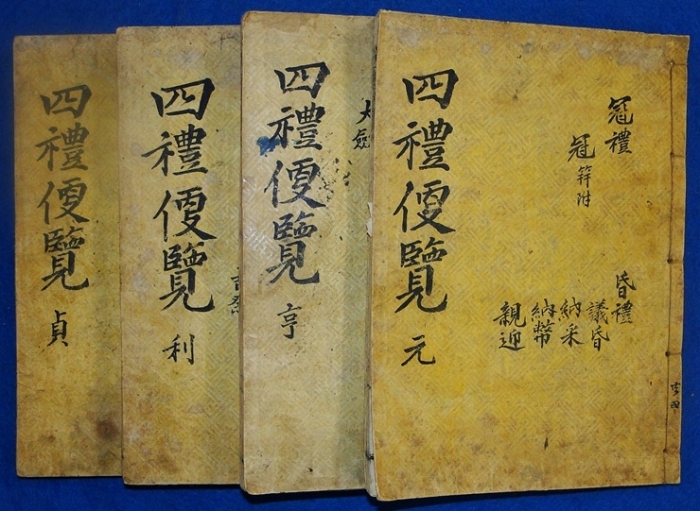 四禮便覽 元
冠禮
冠 笄附
昏禮
議昏
納采
納幣
親迎
共四
四禮便覽 亨
四禮便覽 利
四禮便覽 貞